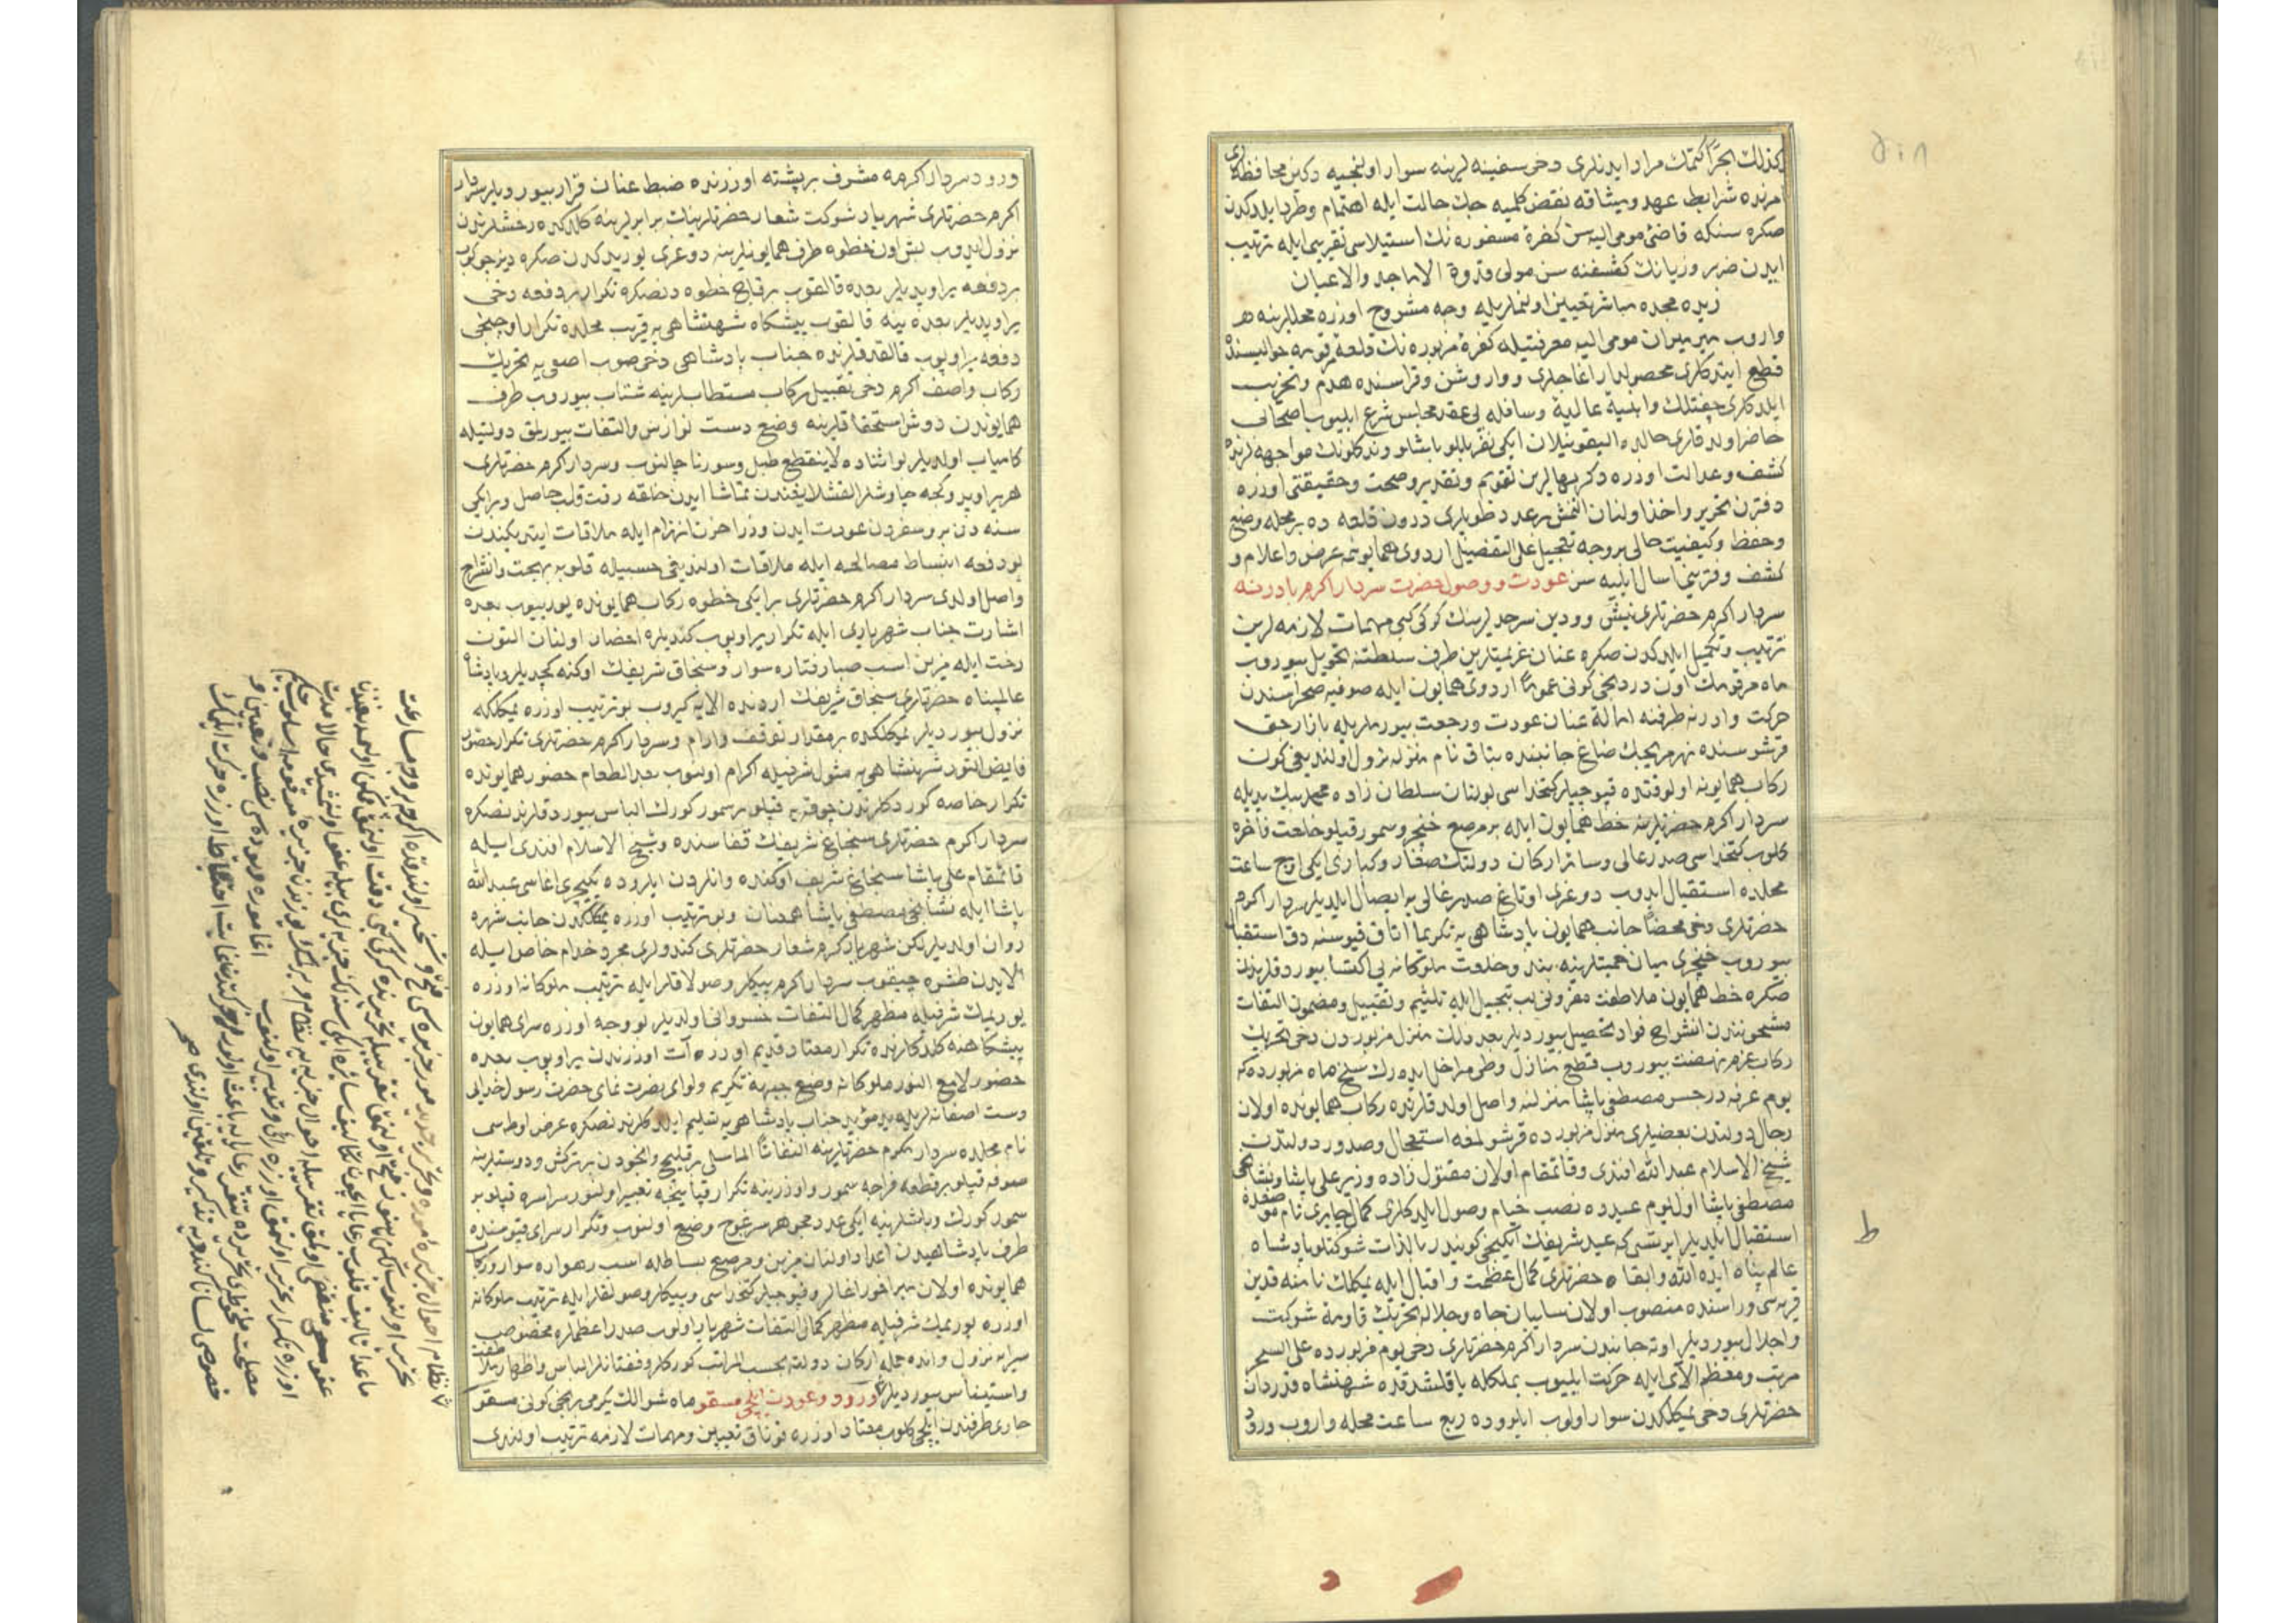 كذلك بحرًا كتمك مراد ايدنلری دخی سفينه لرينه سوار اولنجيه دكين محافظه لری
امرنده شرايط عهد وميثاقه نقض كلميه جك حالت ايله اهتمام وطرد ايلدكدن
صكره سنكه قاضئ مومی اليه سن كفرۀ مسفوره نك استيلاسی تقريبی ايله ترتيب
ايدن ضرر وزيانك كشفنه سن مولی قدوة الاماجد والاعيان
زيده مجده مباشر تعيين اولنمغله وجه مشروح اوزره محللرينه
واروب ميرميران مومی اليه معرفتيله كفرۀ مزبوره نك قلعۀ مرقومه حواليسنده
قطع ايتدكلری محصولدار اغاجلری ووار وشن وقراسنده هدم وتخريب
ايلدكلری چفتلك وابنيۀ عاليه وسافله يی عقد مجلس شرع ايليوب اصحابی
حاضر اولدقلری حالده اليقونيلان ايكی نفر بايلو باشلو وندكلونك مواجهه لرنده
كشف وعدالت اوزره دكر بهالرين تقويم وتقدير وصحت وحقيقتی اوزره
دفترن تحرير واخذ اولنان التمش عدد طوپلری درون قلعه ده بر محله وضع
وحفظ وكيفيت حالی بر وجه تعجيل علی التفصيل اردوی همايونمه عرض واعلام و
كشف دفترينی ارسال ايليه سن عودت ووصول حضرت سردار اكرم بادرنه
سردار اكرم حضرتلری نيش وودين سرحدلرينك كركی كبی مهمات لازمه لرين
ترتيب وتكميل ايلدكدن صكره عنان عزيمتلرين طرف سلطنته تحويل بيوروب
ماه مرقومك اون دردنجی كونی عمومًا اردوی همايون ايله صوفيه صحراسندن
حركت وادرنه طرفنه امالۀ عنان عودت ورجعت بيورملريله بازارجق
قرشوسنده نهر مريجك صاغ جانبنده بتاق نام منزله نزول اولنديغی كون
ركاب همايونه اولوقتده قپوجيلر كتخداسی بولنان سلطان زاده محمد بك يديله
سردار اكرم حضرتلرينه خط همايون ايله بر مرصع خنجر وسمور قپلو خلعت فاخره
كلوب كتخداسی صدر عالی وسائر اركان دولتك صغار وكباری ايكی اوچ ساعت
محلده استقبال ايدوب دوغری اوتاغ صدر عالی يه ايصال ايلديلر سردار اكرم
حضرتلری دخی محضًا جانب همايون پادشاهی يه تكريمًا اتاق قپوسنه دق استقبال
بيوروب خنجری ميان همتلرينه بند وخلعت ملوكانه يی اكتسا بيوردقلرندن
صكره خط همايون ملاطفت مقرونی يد تبجيل ايله تلثيم وتقبيل ومضمون التفات
مشحونندن انشراح فواد تحصيل بيورديلر بعد ذلك منزل مزبوردن دخی تحريك
ركاب عزم ونهضت بيوروب قطع منازل وطی مراحل ايده رك سلخ ماه مزبورده كه
يوم عرفه در جسر مصطفی پاشا منزلنه واصل اولدقلرنده ركاب همايونده اولان
رجال دولتدن بعضيلری منزل مزبورده قرشولمغه استعجال وصدور دولتدن
شيخ الاسلام عبد الله افندی وقائمقام اولان مقتول زاده وزير علی پاشا ونشانجی
مصطفی پاشا اول يوم عيدده نصب خيام وصول ايلدكلری كمال چايری نام موضعده
استقبال ايلديلر ايرتسی كه عيد شريفك ايكينجی كونيدر بالذات شوكتلو پادشاه
عالم پناه ايده الله وابقاه حضرتلری كمال عظمت واقبال ايله يمكلك نامنه قدين
قريه سی وراسنده منصوب اولان سايبان جاه وجلاله تحريك قاومۀ شوكت
واجلال بيورديلر اوته جانبدن سردار اكرم حضرتلری دخی يوم مزبورده علی السحر
مرتب ومعظم الای ايله حركت ايليوب يمكلكله ياقلشدقده شهنشاه قدردان
حضرتلری دخی يمكلكدن سوار اولوب ايلروده ربع ساعت محله واروب ورود
ورود سردار اكرمه مشرف بر پشته اوزرنده ضبط عنان قرار بيورديلر سردار
اكرم حضرتلری شهريار شوكت شعار حضرتلرينك برابرلرينه كلدكده رخشلرندن
نزول ايدوب بش اون خطوه طرف همايونلرينه دوغری يوريدكدن صكره ديز چوكوب
بر دفعه ير اوپديلر بعده قالقوب بر قاچ خطوه دنصكره تكرار بر دفعه دخی
ير اوپديلر بعده ينه قالقوب پيشكاه شهنشاهی يه قريب محلده تكرار اوچنجی
دفعه ير اوپوب قالقدقلرنده جناب پادشاهی دخی صوب اصفی يه تحريك
ركاب واصف اكرم دخی تقبيل ركاب مستطابلرينه شتاب بيوروب طرف
همايوندن دوش استحقاقلرينه وضع دست نوازش والتفات بيورلمق دولتيله
كامياب اولديلر بو اثناده لاينقطع طبل وسورنا چالنوب وسردار اكرم حضرتلری
هر ير اوپدوكجه چاوشلر القشلايغندن تماشا ايدن خلقه رقت قلب حاصل وبر ايكی
سنه دن برو سفردن عودت ايدن وزرا حزن انهزام ايله ملاقات ايتديكندن
بو دفعه انبساط مصالحه ايله ملاقات اولنديغی حسبيله قلوبه بهجت وانشراح
واصل اولدی سردار اكرم حضرتلری بر ايكی خطوه ركاب همايونده يوريیوب بعده
اشارت جناب شهرياری ايله تكرار ير اوپوب كنديلره احضار اولنان التون
رخت ايله مزين اسب صبا رفتاره سوار وسنجاق شريفك اوكنه كچديلر وپادشاه
عالمپناه حضرتلری سنجاق شريفك اردنده الايه كيروب بو ترتيب اوزره يمكلكه
نزول بيورديلر يمكلكده بر مقدار توقف وارام وسردار اكرم حضرتلری تكرار حضور
فايض النور شهنشاهی يه مثول شرفيله اكرام اولنوب بعد الطعام حضور همايونده
تكرار خاصه كوردكلرندن چوقه يه قپلو بر سمور كورك الباس بيوردقلرندنصكره
سردار اكرم حضرتلری سنجاغ شريفك قفاسنده وشيخ الاسلام افندی ايله
قائمقام علی پاشا سنجاغ شريف اوكنده وانلردن ايلروده يكيچری اغاسی عبد الله
پاشا ايله نشانجی مصطفی پاشا همعنان وبو ترتيب اوزره يمكلكدن جانب شهره
روان اولديلر لكن شهريار كرم شعار حضرتلری كندولری مجرد خدام خاص ايله
الايدن طشره چيقوب سردار اكرم پيكلر وصولاقلر ايله ترتيب ملوكانه اوزره
يوريمك شرفيله مظهر كمال التفات خسروانی اولديلر بو وجه اوزره سرای همايون
پيشكاهنه كلدكلرنده تكرار معتاد قديم اوزره آت اوزرندن ير اوپوب بعده
حضور لامع النور ملوكانه وضع جبهۀ تكريم ولوای نصرت نمای حضرت رسول خدايی
دست اصفانه لريله يد مؤيد جناب پادشاهی يه تسليم ايلدكلرندنصكره عرض اوطه سی
نام محلده سردار مكرم حضرتلرينه التفاتًا الماسلی بر قليچ وانجودن بر تركش ودوشلرينه
صوف قپلو بر قطعه فراجه سمور واوزرينه تكرار قپانيچه تعبير اولنور سراسره قپلو بر
سمور كورك وباشلرينه ايكی عدد مجوهر سرغوج وضع اولنوب وتكرار سرای قپوسنده
طرف پادشاهيدن اعداد اولنان مزين ومرصع بساطله اسب رهواره سوار وركاب
همايونده اولان ميراخور اغالر وقپوجيلر كتخداسی وپيكلر وصولقلر ايله ترتيب ملوكانه
اوزره يوريمك شرفيله مظهر كمال التفات شهريار اولوب صدر اعظملره مخصوص
سرايه نزول وانده جمله اركان دولته بحسب المراتب كوركلر وقفتانلر الباس واظهار ملاطفت
واستيناس بيورديلر ورود وعودت ايلچی مسقو ماه شوالك يكرمی بشنجی كونی مسقو
چاری طرفندن ايلچی كلوب معتاد اوزره قوناق تعيين ومهمات لازمه ترتيب اولندی